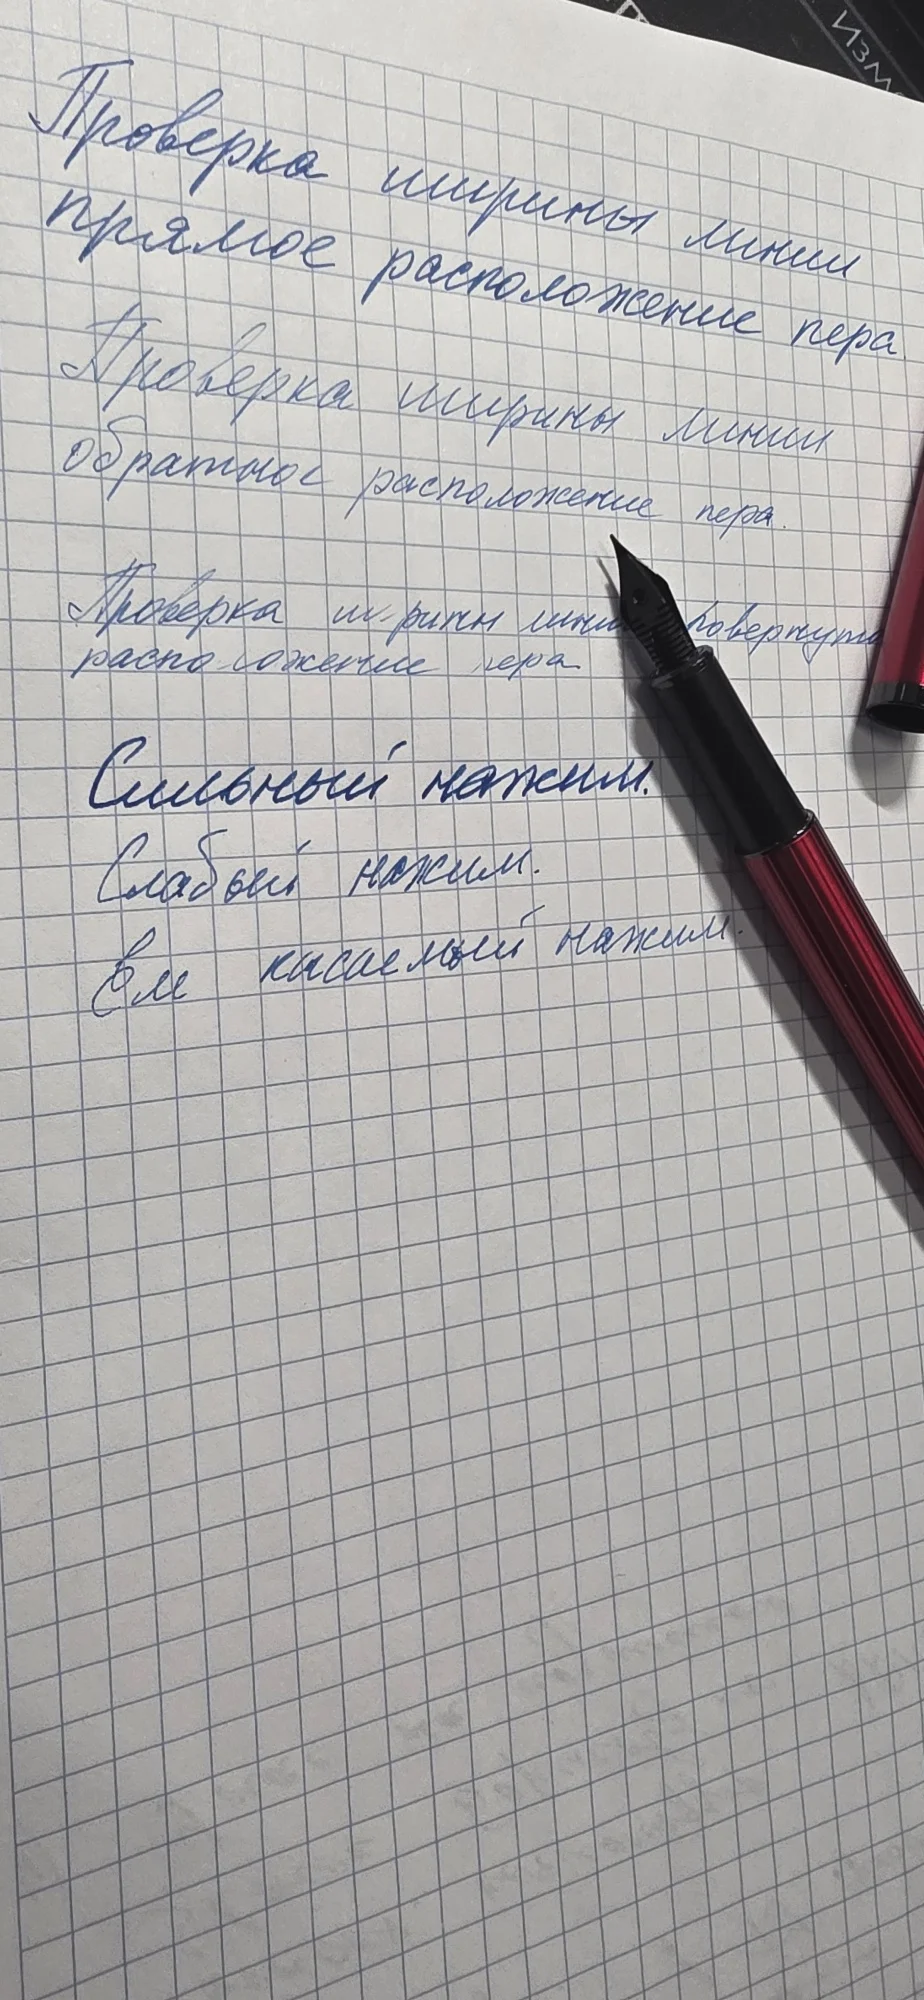 ИЗМ
Проверка ширины линии
прямое расположение пера
Проверка ширины линии
обратное расположение пера.
Проверка ширины линии повернутое
расположение пера
Сильный нажим.
Слабый нажим.
Еле касаемый нажим.